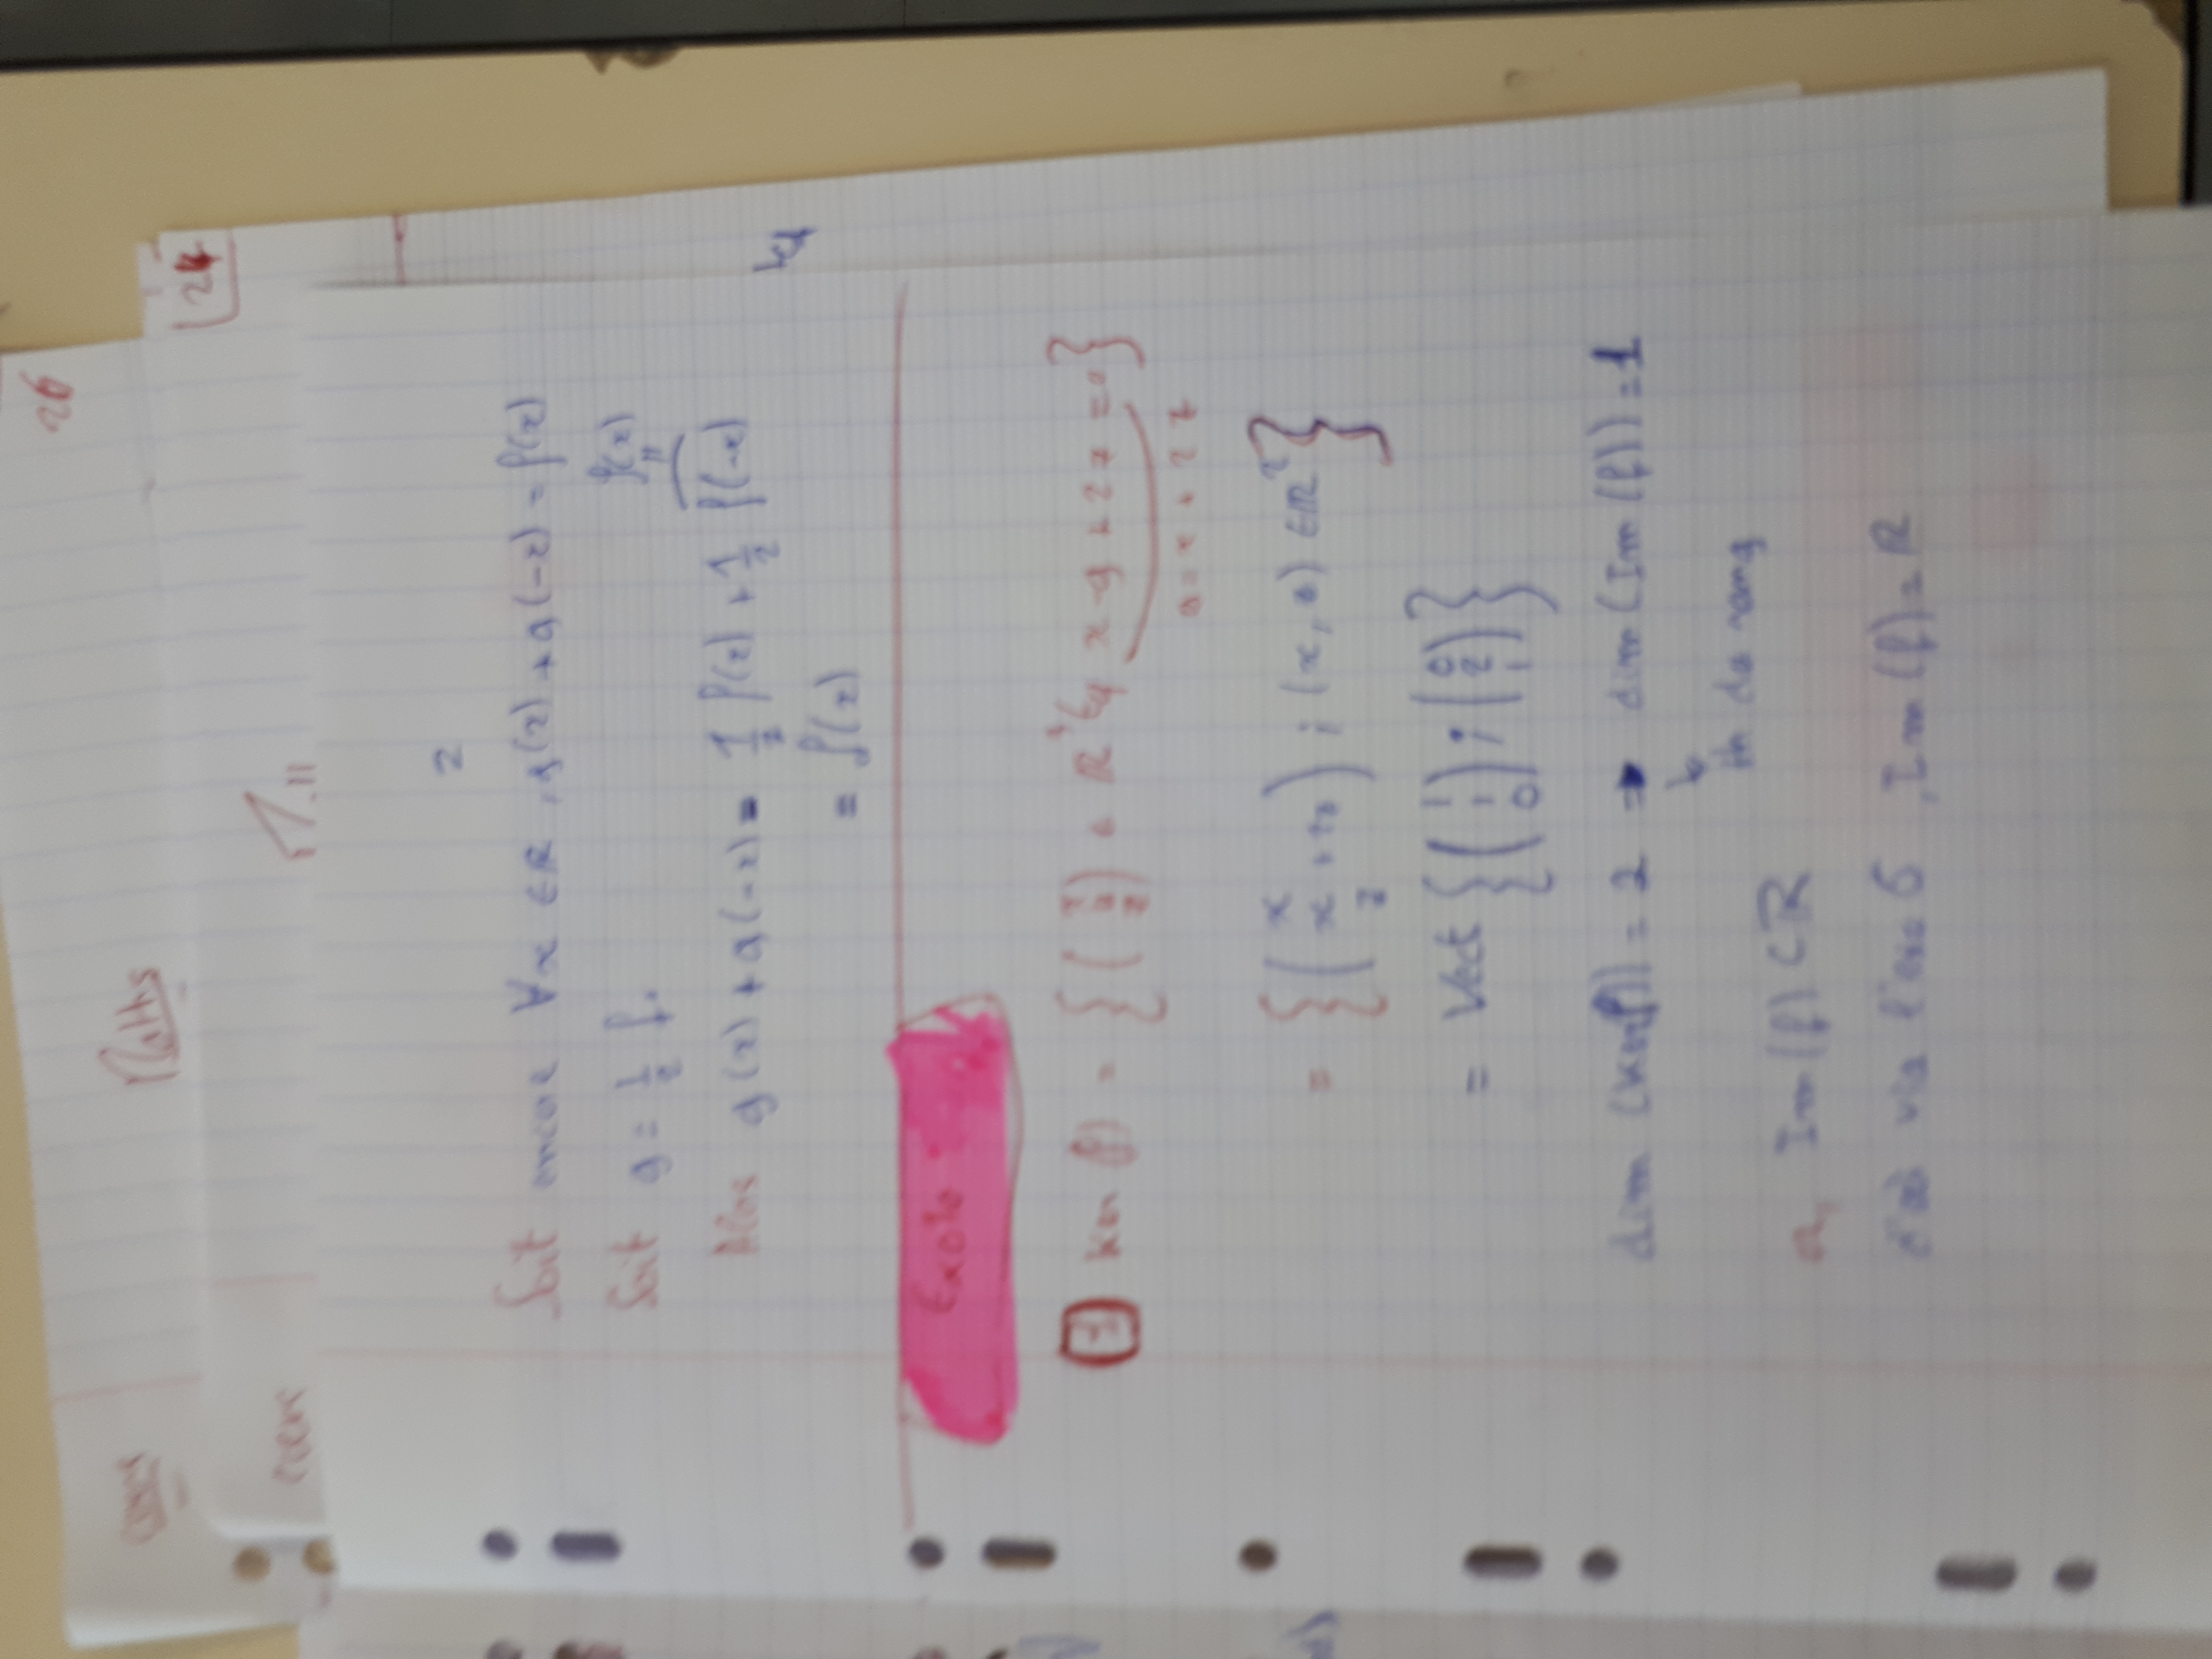 26
Maths
cours
24
2
Soit encore ∀x ∈ ℝ, g(x) + g(-x) = f(x)
Soit g = 1/2 f.
f(x)
"
Alors g(x) + g(-x) = 1/2 f(x) + 1/2 f(-x)
= f(x)
Exo
Ker f) = {( x y z ) ∈ ℝ tq x - y + 2z = 0}
= x + 2z
= {( x x + 2z z ) ; (x, z) ∈ ℝ²}
= Vect {( 1 1 0 ) ; ( 0 2 1 )}
dim (Ker f)) = 2 ⇒ dim (Im (f)) = 1
th du rang
Or, Im (f) ⊂ ℝ
d'où via l'exo 6, Im (f) = ℝ